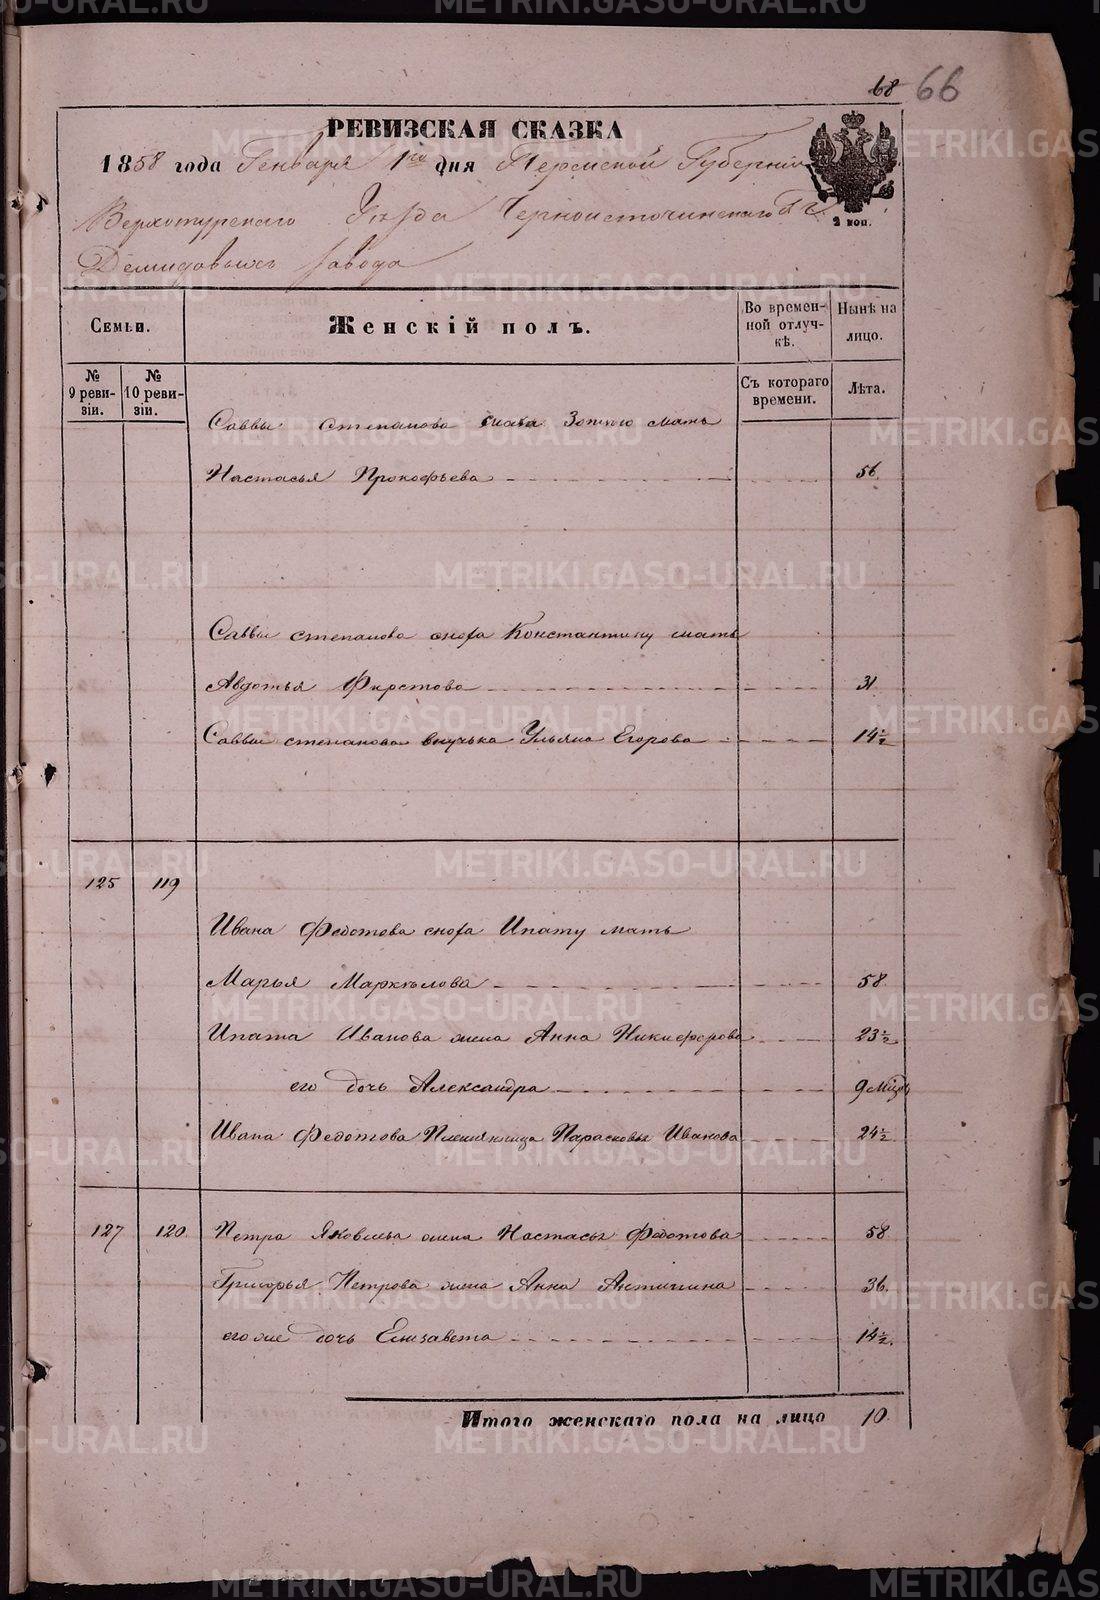 68 66
РЕВИЗСКАЯ СКАЗКА
1858 года Генваря 1го дня Пермской Губерніи
Верхотурскаго Уѣзда Черноисточинскаго Г. г.
Демидовыхъ завода
2 коп.
Семьи.
Женскій полъ.
Во времен-
ной отлуч-
кѣ.
Нынѣ на
лицо.
№
9 реви-
зіи.
№
10 реви-
зіи.
Съ котораго
времени.
Лѣта.
Саввы Степанова сноха Зотию мать
Настасья Прокофьева 56
Саввы степанова сноха Константину мать
Авдотья Фирстова 31
Саввы степанова внучька Ульяна Егорова 14½
125 119
Ивана Федотова сноха Ипату мать
Марья Маркѣлова 58
Ипата Иванова жена Анна Никифорова 23½
его дочь Александра 9 мѣсяц
Ивана Федотова Племянница Парасковья Иванова 24½
127 120 Петра Яковлева жена Настасья Федотова 58
Григорья Петрова жена Анна Антипина 36
его же дочь Елизавета 14½
Итого женскаго пола на лицо 10
METRIKI.GASO-URAL.RU